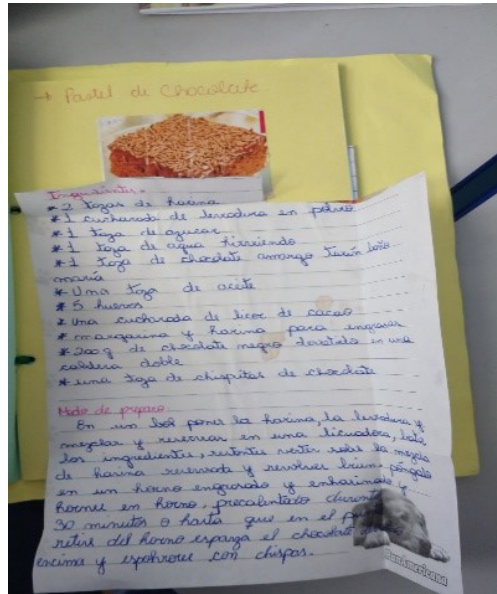 → Pastel de Chocolate
Ingredientes.
* 2 tazas de harina
* 1 cucharada de levadura en polvo
* 1 taza de azucar
* 1 taza de agua hirviendo
* 1 taza de chocolate amargo baño
maría
* Una taza de aceite
* 5 huevos
* una cucharada de licor de cacao
* margarina y harina para engrasar
* 200 g de chocolate negro derretido en una
caldera doble
* una taza de chispitas de chocolate
Modo de preparo
En un bol poner la harina, la levadura y
mezclar y reservar en una licuadora, bata
los ingredientes, restantes vertir sobre la mezcla
de harina reservada y revolver bien. póngalo
en un horno engrasado y enharinado y
hornee en horno, precalentado durante
30 minutos o hasta que en el
retire del horno esparza el chocolate
encima y espolvoree con chispas.
PanAmericana